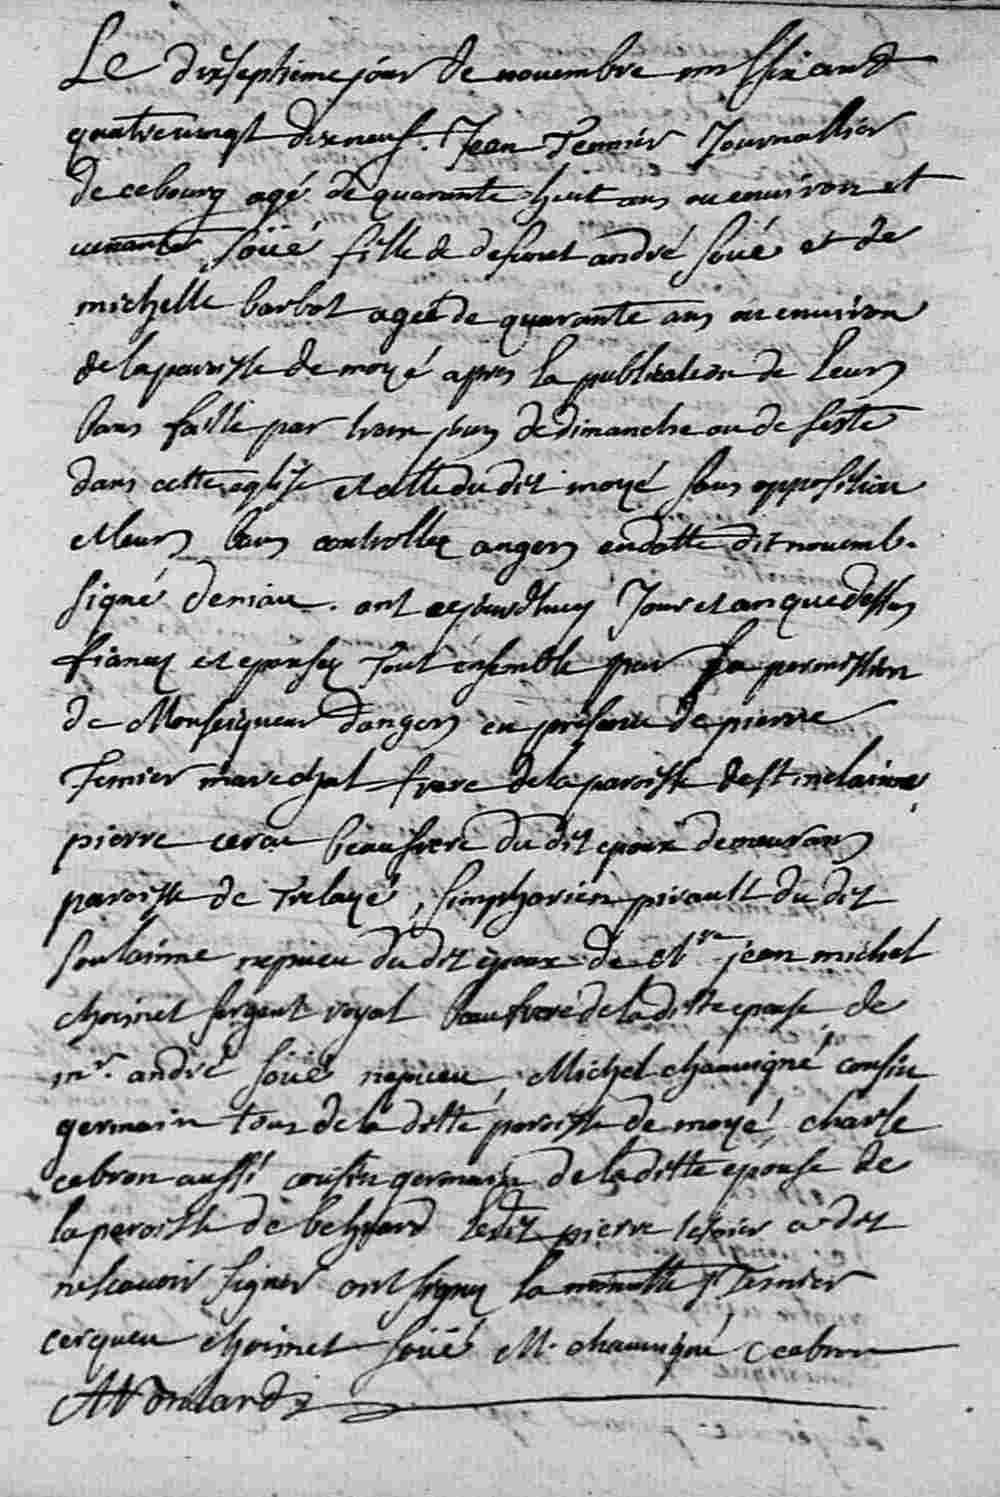 Le dixseptieme jour de novembre mil six cand
quatrevingt dixneuf. Jean Temier Journallier
de cebourg agé de quarante huit ans ou environ et
venante soüé fille de defunct andré soüé et de
michelle barbot ageé de quarante ans ou environ
de la paroisse de moyé apres la publication de leurs
bans faitte par trois jours de dimanche ou de feste
dans cette eglise et celle du dit moyé sans opposition
et leurs bans controllez angers endatte dit novemb.
signé deniau. ont cejourdhuy Jour et an que dessus
fiancez et epousez tout ensemble par la permission
de Monseigneur dangers en presence de pierre
Temier marechal frere de la paroisse de st melainne,
pierre cerau beaufrere du dit epoux demeurans
paroisse de trelazé, simphorien pirault du dit
soulainne nepveu du dit epoux de Mtre jean michel
choimet sergent royal beaufrere de la ditte epouse de
mr. andré soüé nepveu, Michel chauvigné cousin
germain tous de la ditte paroisse de moyé, charle
cebron aussi cousin germain de la ditte epouse de
la paroisse de behuard ledit pierre temier a dit
ne scavoir signer ont signez la minutte P Temier
cerqueu choimet soüé M. chauvigné C cebron